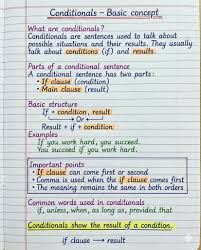 Conditionals – Basic concept
What are conditionals?
Conditionals are sentences used to talk about
possible situations and their results. They usually
talk about conditions (if) and results.
Parts of a conditional sentence
A conditional sentence has two parts:
• If clause (condition)
• Main clause (result)
Basic structure
If + condition, result
Or
Result + if + condition.
Examples
If you work hard, you succeed.
You succeed if you work hard.
Important points
• If clause can come first or second
• Comma is used when the if clause comes first
• The meaning remains the same in both orders
Common words used in conditionals
if, unless, when, as long as, provided that
Conditionals show the result of a condition.
if clause → result